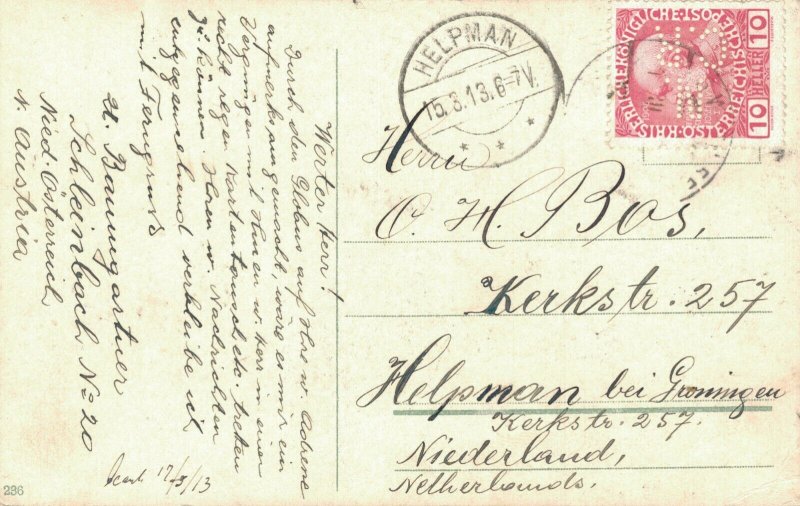 Werter Herr!
Durch den Globus auf Ihre w. Adresse
aufmerksam gemacht, wäre es mir ein
Vergnügen mit Ihnen w. Herr in einen
recht regen Kartentausch etc. treten
zu können. Ihren w. Nachrichten
entgegensehend verbleibe ich
mit Ferngruss
A. Baumgartner
Schleinbach No 20
Nied. Österreich
N. Austria
17/3/13
236
HELPMAN
15.3.13.6-7V.
KAISERLICHE KÖNIGLICHE ÖSTERREICHISCHE POST
10 HELLER 10
Herrn
C. H. Bos,
Kerkstr. 257
Helpman bei Groningen
Kerkstr. 257.
Niederland,
Netherlands.